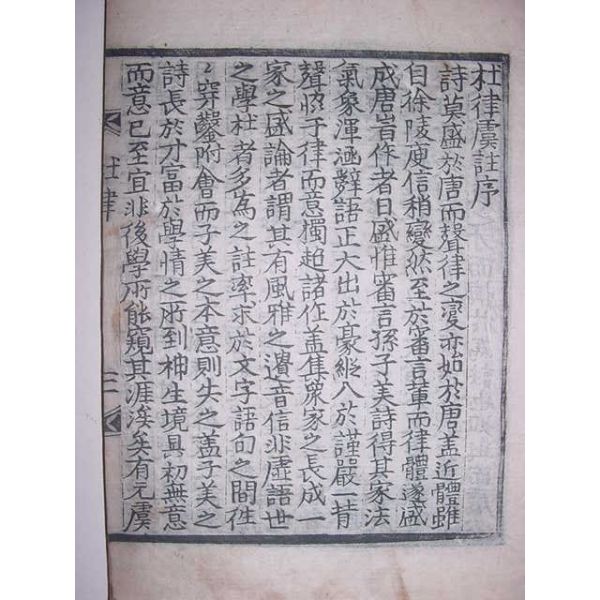 杜律虞註序
詩莫盛於唐而聲律之變亦始於唐盖近體雖
自徐陵庾信稍變然至於審言輩而律體遂盛
成唐音作者日盛惟審言孫子美詩得其家法
氣象渾涵辭語正大出於豪縱入於謹嚴一昔
聲恊于律而意獨超諸作盖集衆家之長成一
家之盛論者謂其有風雅之遺音信非虛語世
之學杜者多為之註率求於文字語句之間徃
〻穿鑿附會而子美之本意則失之盖子美之
詩長於才富於學情之所到神生境具初無意
而意已至宜非後學所能窺其涯涘矣有元虞
杜律
一